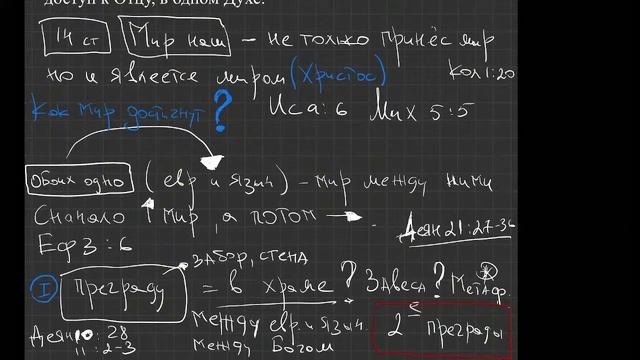 доступ к Отцу, в одном Духе.
14 ст Мир наш – не только принёс мир
но и является миром (Христос) Кол 1:20
Как мир достигнут? Иса: 6 Мих 5:5
Обоих одно (евр и языч) – мир между ними
Сначало ↑ мир, а потом → Деян 21:27-36
Еф 3:6
забор, стена
I преграду = в храме? Завеса? Метаф.
Деян 10:28 между евр и язычн. 2е преграды
11:2-3 между Богом